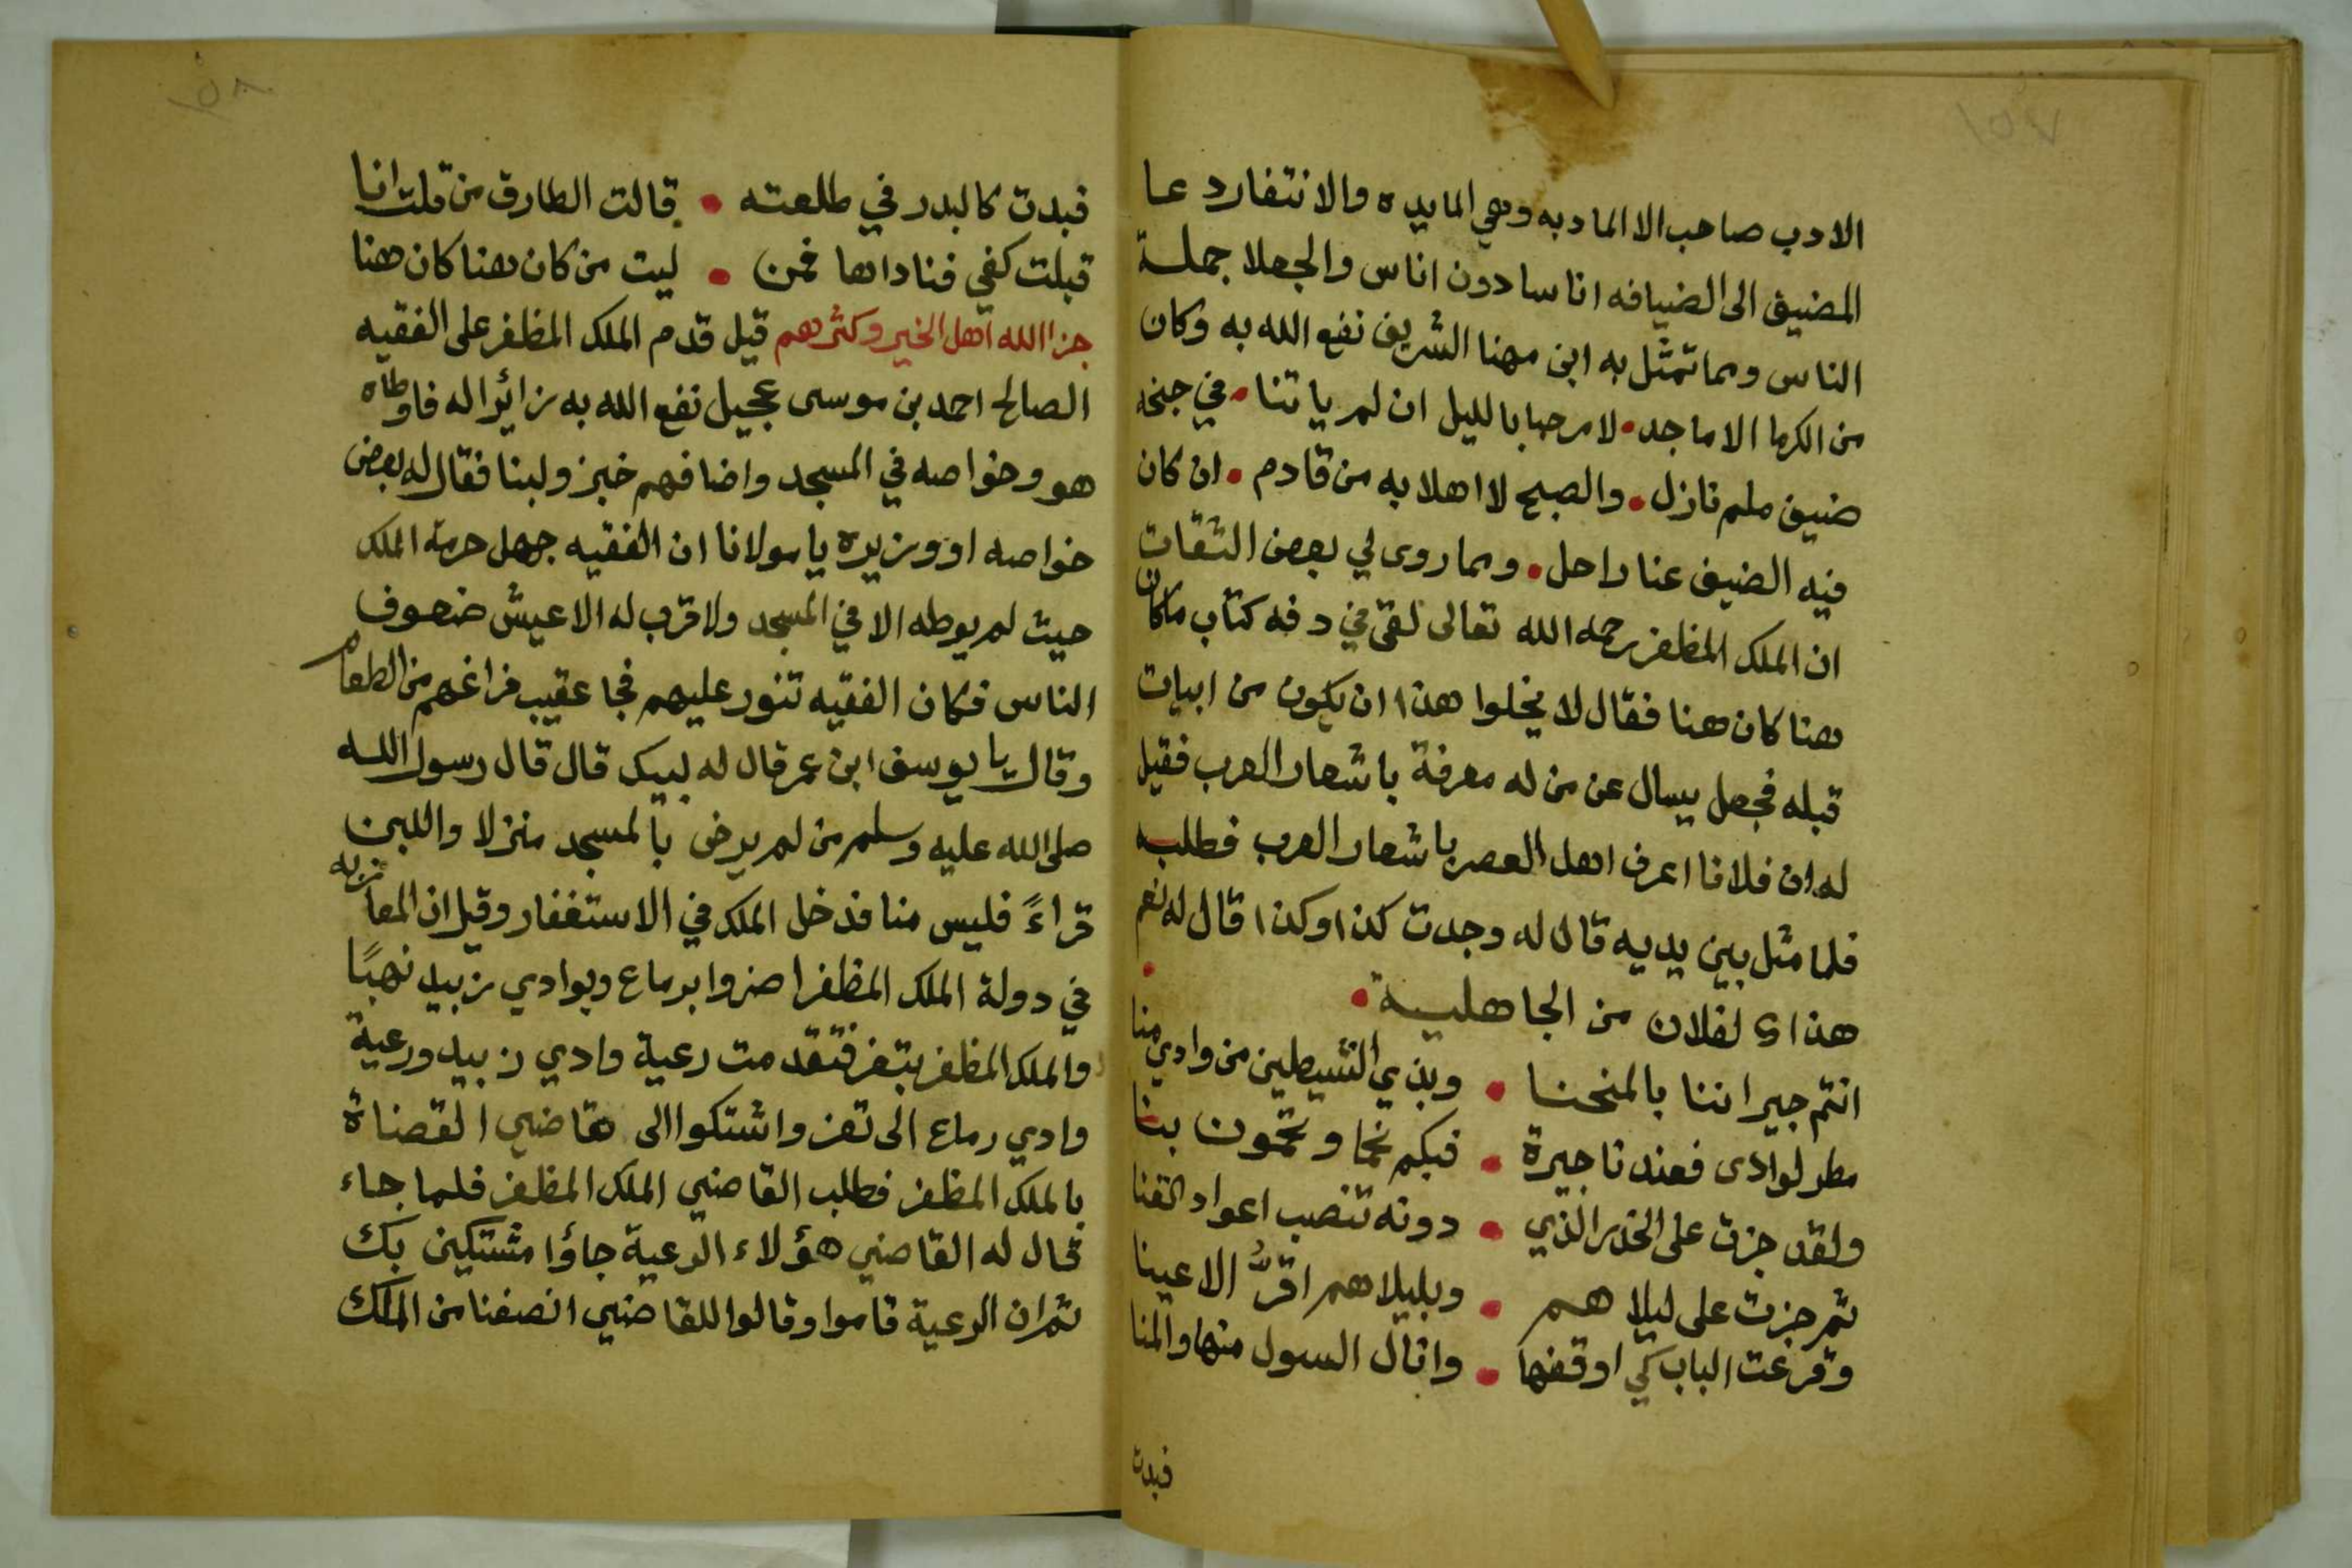 ١٥٧
الادب صاحب الا المادبه وهي المايده والانتقار دعا
المضيف الى الضيافه اناسا دون اناس والجعلا جملة
الناس ومما تمثل به ابن مهنا الشريف نفع الله به وكان
من الكرما الاماجد • لا مرحبا بالليل ان لم ياتنا • في جنحه
ضيف ملم نازل • والصبح لا اهلا به من قادم • ان كان
فيه الضيف عنا راحل • ومما روى لي بعض الثقات
ان الملك المظفر رحمه الله تعالى لقي في دفه كتاب ماكان
هنا كان هنا فقال لا يخلوا هذا ان يكون من ابيات
قبله فجعل يسال عن من له معرفة باشعار العرب فقيل
له ان فلانا اعرف اهل العصر باشعار العرب فطلبه
فلما مثل بين يديه قال له وجدت كذا وكذا قال له نعم
هذا لفلان من الجاهلية •
انتم جيراننا بالمنحنا • وبذي النسيطين من وادي منا
مطر لوادى فعندنا جيرة • فبكم نحما وتحمون بنا
ولقد جزت على الخدر الذي • دونه تنصب اعواد القنا
ثم جزت على ليلاهم • وبليلاهم اقرُّ الاعينا
وقرعت الباب كي اوقضها • وانال السول منها والمنا
فبدت
١٥٨
فبدت كالبدر في طلعته • قالت الطارق من قلت انا
قبلت كفي فناداها فمن • ليت من كان هنا كان هنا
جزا الله اهل الخير وكثرهم قيل قدم الملك المظفر على الفقيه
الصالح احمد بن موسى عجيل نفع الله به زائرا له فاوطاه
هو وخواصه في المسجد واضافهم خبز ولبنا فقال له بعض
خواصه او وزيره يا مولانا ان الفقيه جهل حرمة الملك
حيث لم يوطه الا في المسجد ولا قرب له الا عيش ضعوف
الناس فكان الفقيه تنور عليهم فجا عقيب فراغهم من الطعام
وقال يا يوسف ابن عمر قال له لبيك قال قال رسول الله
صلى الله عليه وسلم من لم يرض بالمسجد منزلا واللبن
قراءً فليس منا فدخل الملك في الاستغفار وقيل ان المعازبه
في دولة الملك المظفر اضروا برماع وبوادي زبيد نهبًا
والملك المظفر بتعز فتقدمت رعية وادي زبيد ورعية
وادي رماع الى تعز واشتكوا الى قاضي القضاة
بالملك المظفر فطلب القاضي الملك المظفر فلما جاء
قال له القاضي هؤلاء الرعية جاؤا مشتكين بك
ثم ان الرعية قاموا وقالوا للقاضي انصفنا من الملك